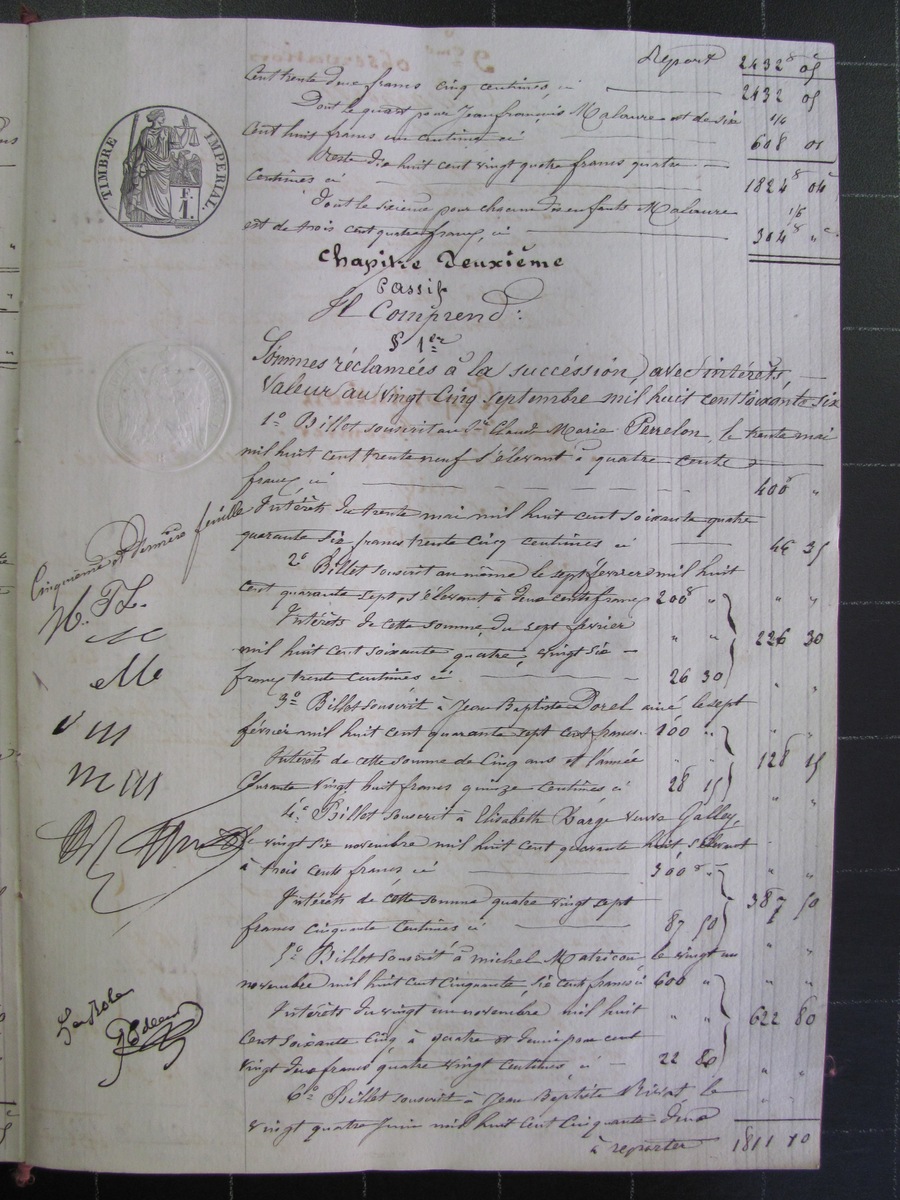 Report 2432 f 05 c
Cent trente deux francs cinq centimes, ci — 2432 05
Dont le quart pour Jean françois Malaure est de six 1/4
Cent huit francs un centime ci — 608 01
Reste dix huit cent vingt quatre francs quatre
Centimes ci — 1824 f 04 c
dont le sixième pour chacun des enfants Malaure 1/6
est de trois cent quatre francs, ci — 304 f " c
TIMBRE IMPERIAL.
1 F.
Chapitre Deuxième
Passif
Il Comprend:
§ 1er
Sommes réclamées à la succession, avec intérêts,
Valeur au vingt Cinq Septembre mil huit cent soixante six
1o Billet souscrit au Sr Claude Marie Perrelon, le trente mai
mil huit cent trente neuf s'élevant à quatre cents
francs ci — 400 "
Intérêts du trente mai mil huit cent soixante quatre
quarante six francs trente Cinq centimes ci — 46 35
2o Billet souscrit au même le sept février mil huit
Cent quarante sept, s'élevant à deux cents francs 200 f " " "
Intérêts de cette somme, du sept février " " 226 30
mil huit cent soixante quatre, vingt six
francs trente Centimes ci — 26 30 " "
3o Billet souscrit à Jean Baptiste Dorel ainé le sept
février mil huit cent quarante sept cent francs. 100 " " "
Intérêts de cette somme de Cinq ans et l'année " " 128 15
Courante vingt huit francs quinze Centimes ci 28 15 " "
4o Billet souscrit à Elisabeth Barge veuve Galley,
le vingt six novembre mil huit cent quarante huit s'élevant
à trois cents francs ci — 300 f " " "
Intérêts de cette somme quatre vingt sept 387 50
francs cinquante Centimes ci — 87 50
5o Billet souscrit à michel Matricon le vingt un " "
novembre mil huit cent Cinquante, six cent francs ci 600 " " "
Intérêts du vingt un novembre mil huit " " 622 80
Cent soixante Cinq à quatre et demi pour cent
vingt deux francs quatre vingt Centimes ci — 22 80 " "
6o Billet souscrit à Jean Baptiste le "
vingt quatre Juin mil huit Cent Cinquante deux
à reporter 1811 10
Cinquième et dernière feuille